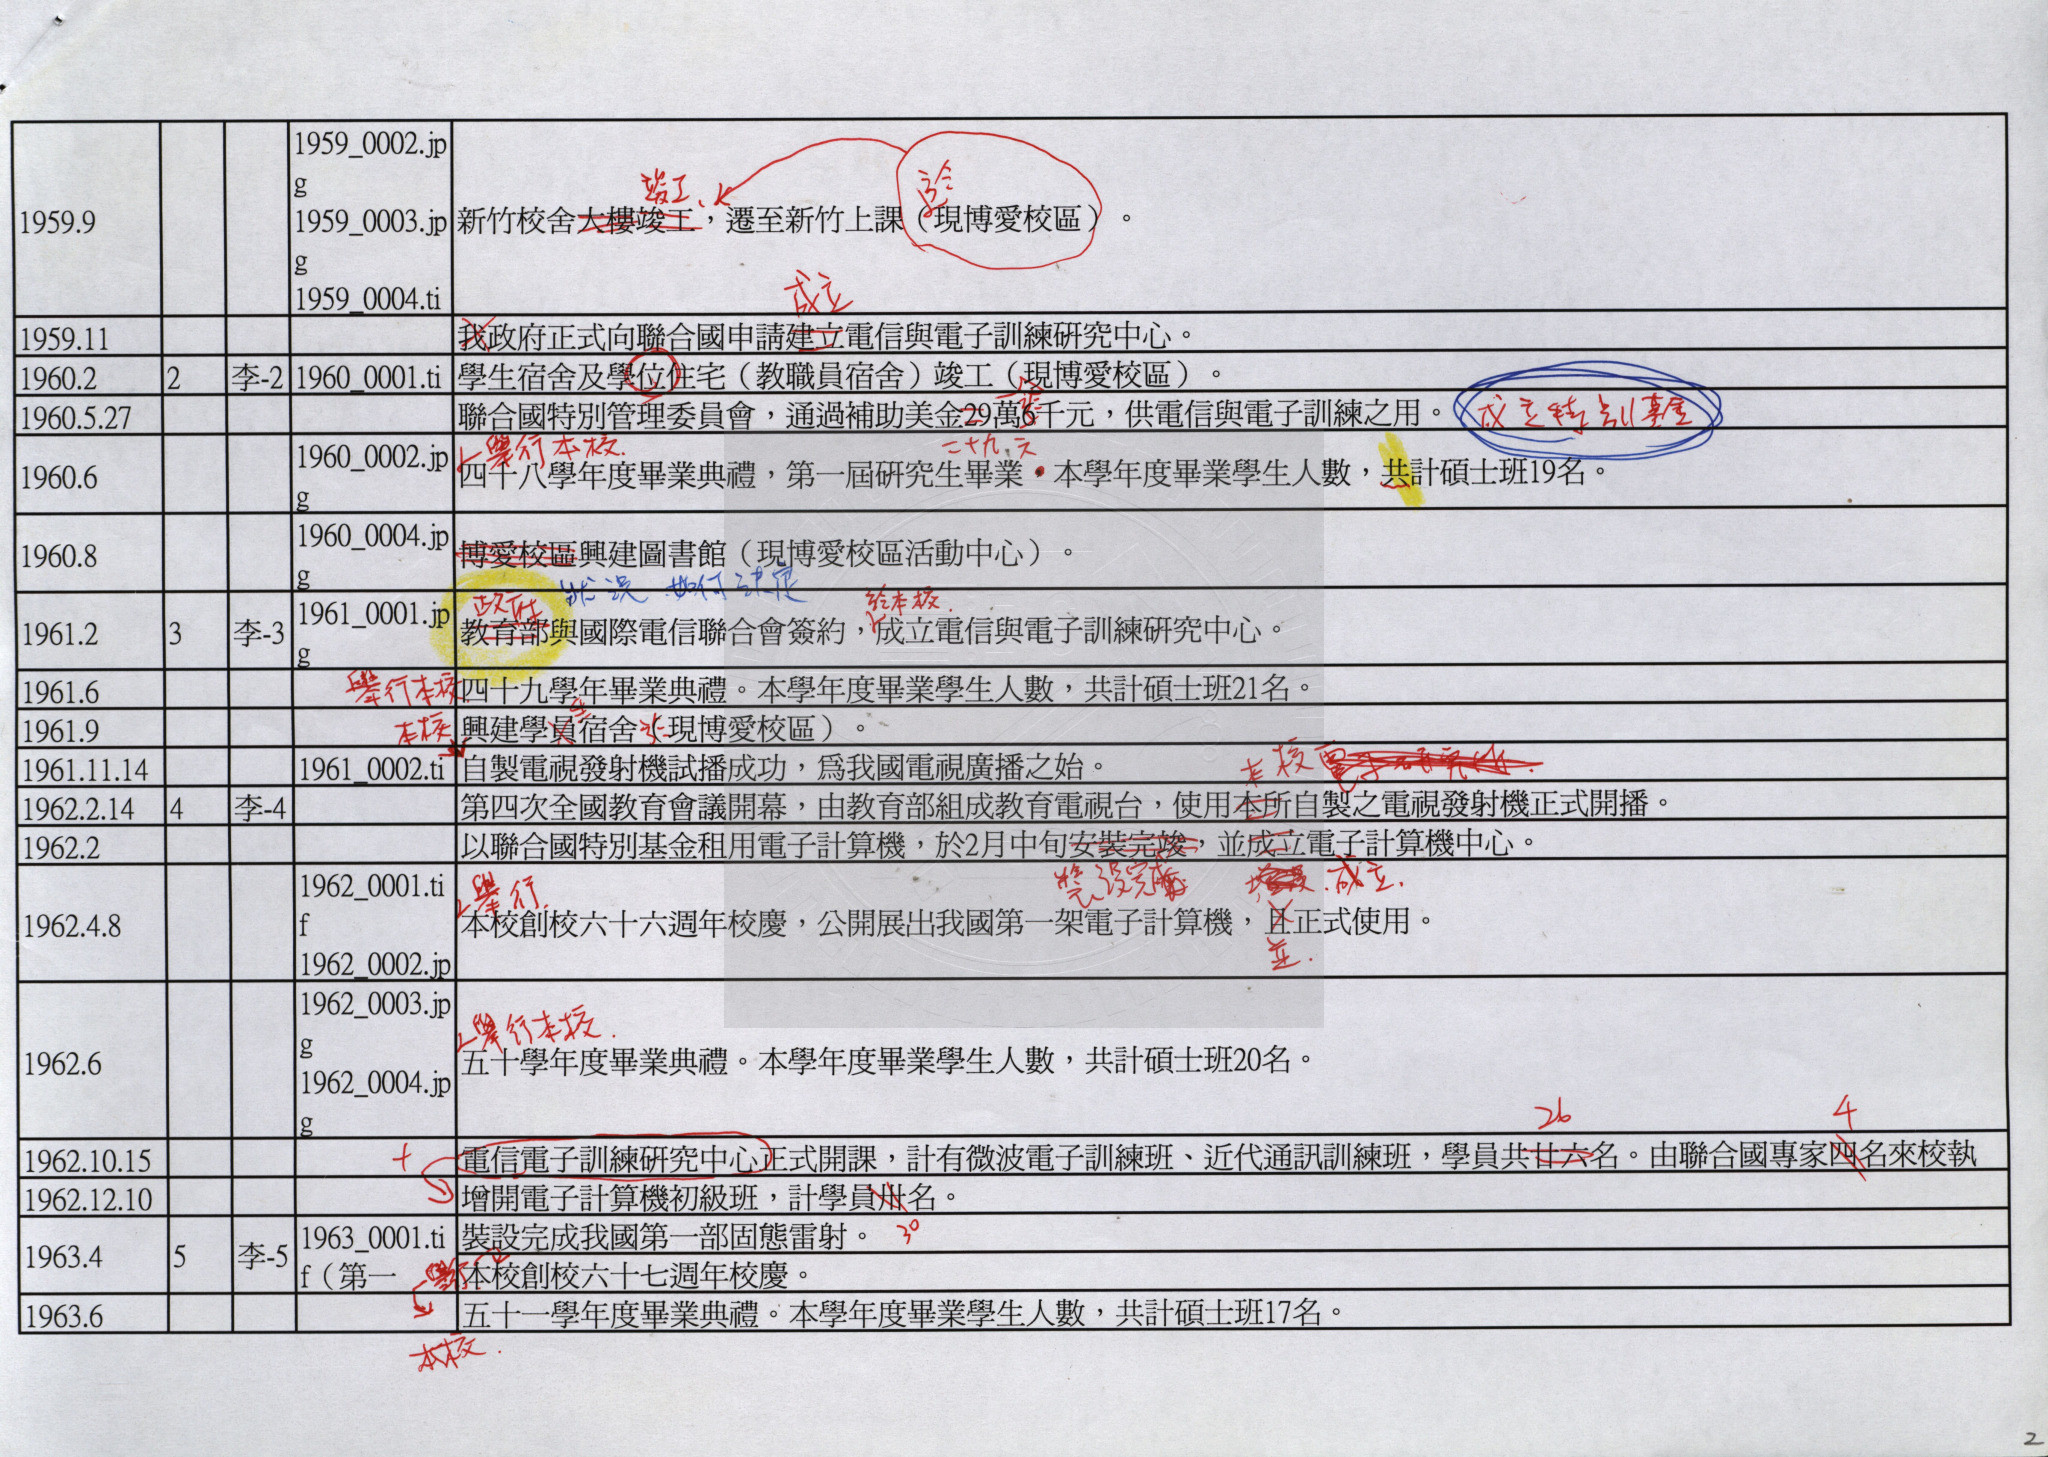 1959_0002.jp
g
1959_0003.jp
g
1959_0004.ti
竣工、
1959.9 新竹校舍大樓竣工，遷至新竹上課（現博愛校區）。
成立
1959.11 我政府正式向聯合國申請建立電信與電子訓練研究中心。
1960.2 2 李-2 1960_0001.ti 學生宿舍及學位住宅（教職員宿舍）竣工（現博愛校區）。
1960.5.27 聯合國特別管理委員會，通過補助美金29萬6千元，供電信與電子訓練之用。
二十九 六
舉行本校
1960_0002.jp
g
1960.6 四十八學年度畢業典禮，第一屆研究生畢業・本學年度畢業學生人數，共計碩士班19名。
1960_0004.jp
g
1960.8 博愛校區興建圖書館（現博愛校區活動中心）。
政府 狀況 如何決定
給本校
1961_0001.jp
g
1961.2 3 李-3 教育部與國際電信聯合會簽約，成立電信與電子訓練研究中心。
舉行本校
1961.6 四十九學年畢業典禮。本學年度畢業學生人數，共計碩士班21名。
1961.9 興建學員宿舍（現博愛校區）。
本校
1961.11.14 1961_0002.ti 自製電視發射機試播成功，為我國電視廣播之始。
本校
1962.2.14 4 李-4 第四次全國教育會議開幕，由教育部組成教育電視台，使用本所自製之電視發射機正式開播。
1962.2 以聯合國特別基金租用電子計算機，於2月中旬安裝完竣，並成立電子計算機中心。
裝設完成 成立
舉行
1962_0001.ti
f
1962_0002.jp
1962.4.8 本校創校六十六週年校慶，公開展出我國第一架電子計算機，且正式使用。
並
舉行本校
1962_0003.jp
g
1962_0004.jp
g
1962.6 五十學年度畢業典禮。本學年度畢業學生人數，共計碩士班20名。
26 4
1962.10.15 電信電子訓練研究中心正式開課，計有微波電子訓練班、近代通訊訓練班，學員共廿六名。由聯合國專家四名來校執
1962.12.10 增開電子計算機初級班，計學員卅名。
30
1963.4 5 李-5 1963_0001.ti
f（第一
裝設完成我國第一部固態雷射。
本校創校六十七週年校慶。
1963.6 五十一學年度畢業典禮。本學年度畢業學生人數，共計碩士班17名。
本校
2